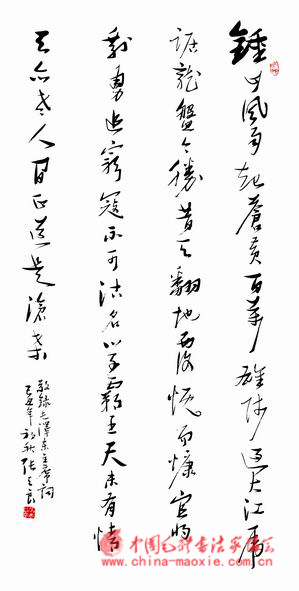 鍾山風雨起蒼黃百萬雄師過大江虎
踞龍盤今勝昔天翻地覆慨而慷宜將
剩勇追窮寇不可沽名學霸王天若有情
天亦老人間正道是滄桑
敬錄毛澤東主席詞
己丑年初秋張
中国毛体书法家
www.china-maoxie.com.cn